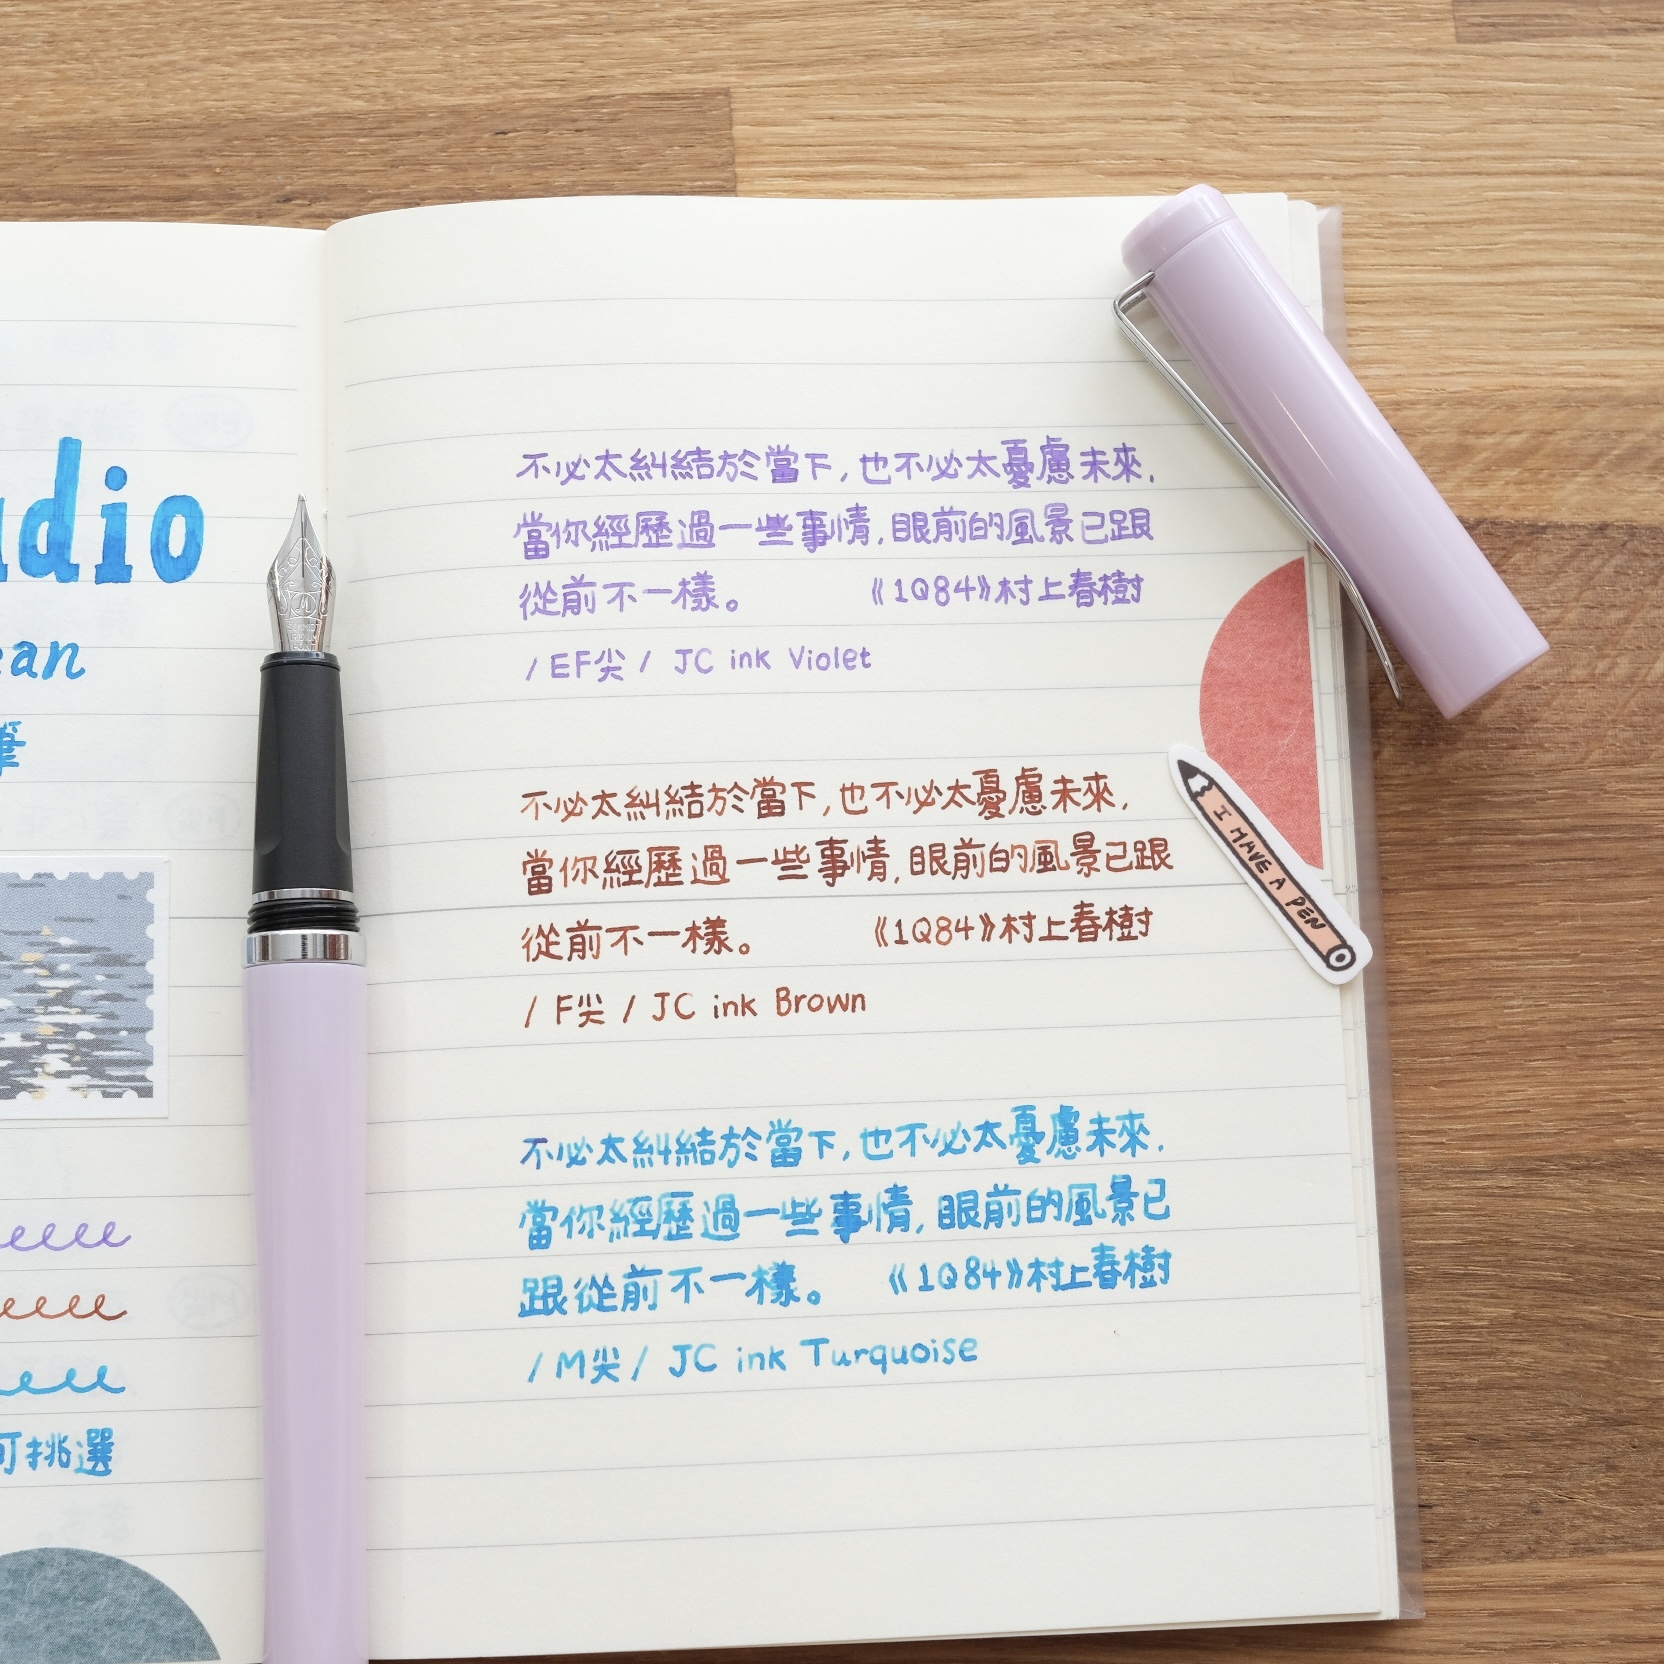 udio
ean
筆
可挑選
不必太糾結於當下,也不必太憂慮未來.
當你經歷過一些事情,眼前的風景已跟
從前不一樣。 《1Q84》村上春樹
/ EF尖 / JC ink Violet
不必太糾結於當下,也不必太憂慮未來.
當你經歷過一些事情,眼前的風景已跟
從前不一樣。 《1Q84》村上春樹
/ F尖 / JC ink Brown
不必太糾結於當下,也不必太憂慮未來.
當你經歷過一些事情,眼前的風景已
跟從前不一樣。 《1Q84》村上春樹
/ M尖 / JC ink Turquoise
I HAVE A PEN
SCHMIDT
IRIDIUM
POINT